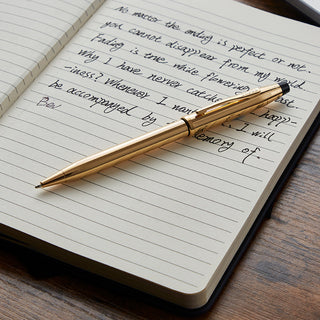 No matter the ending is perfect or not.
you cannot disappear from my world.
Fading is true while flowering is past.
Why I have never catche happ-
iness? Whenever I want I will
be accompanied by memory of.
Bev